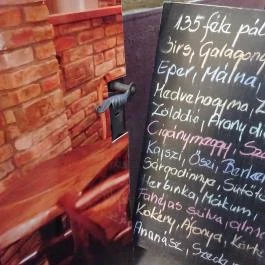 135 féle pál
Birs, Galagony
Eper, Málna,
Medvehagyma, Z
Zölddió, Arany di
Cigánymeggy, Sze
Kajszi, Őszi, Barken
Sárgadinnye, Sütőt
Herbinka, Mákum,
Fahéjas szilva, alma
Kökény, Áfonya, Körte
Ananász, Szeder